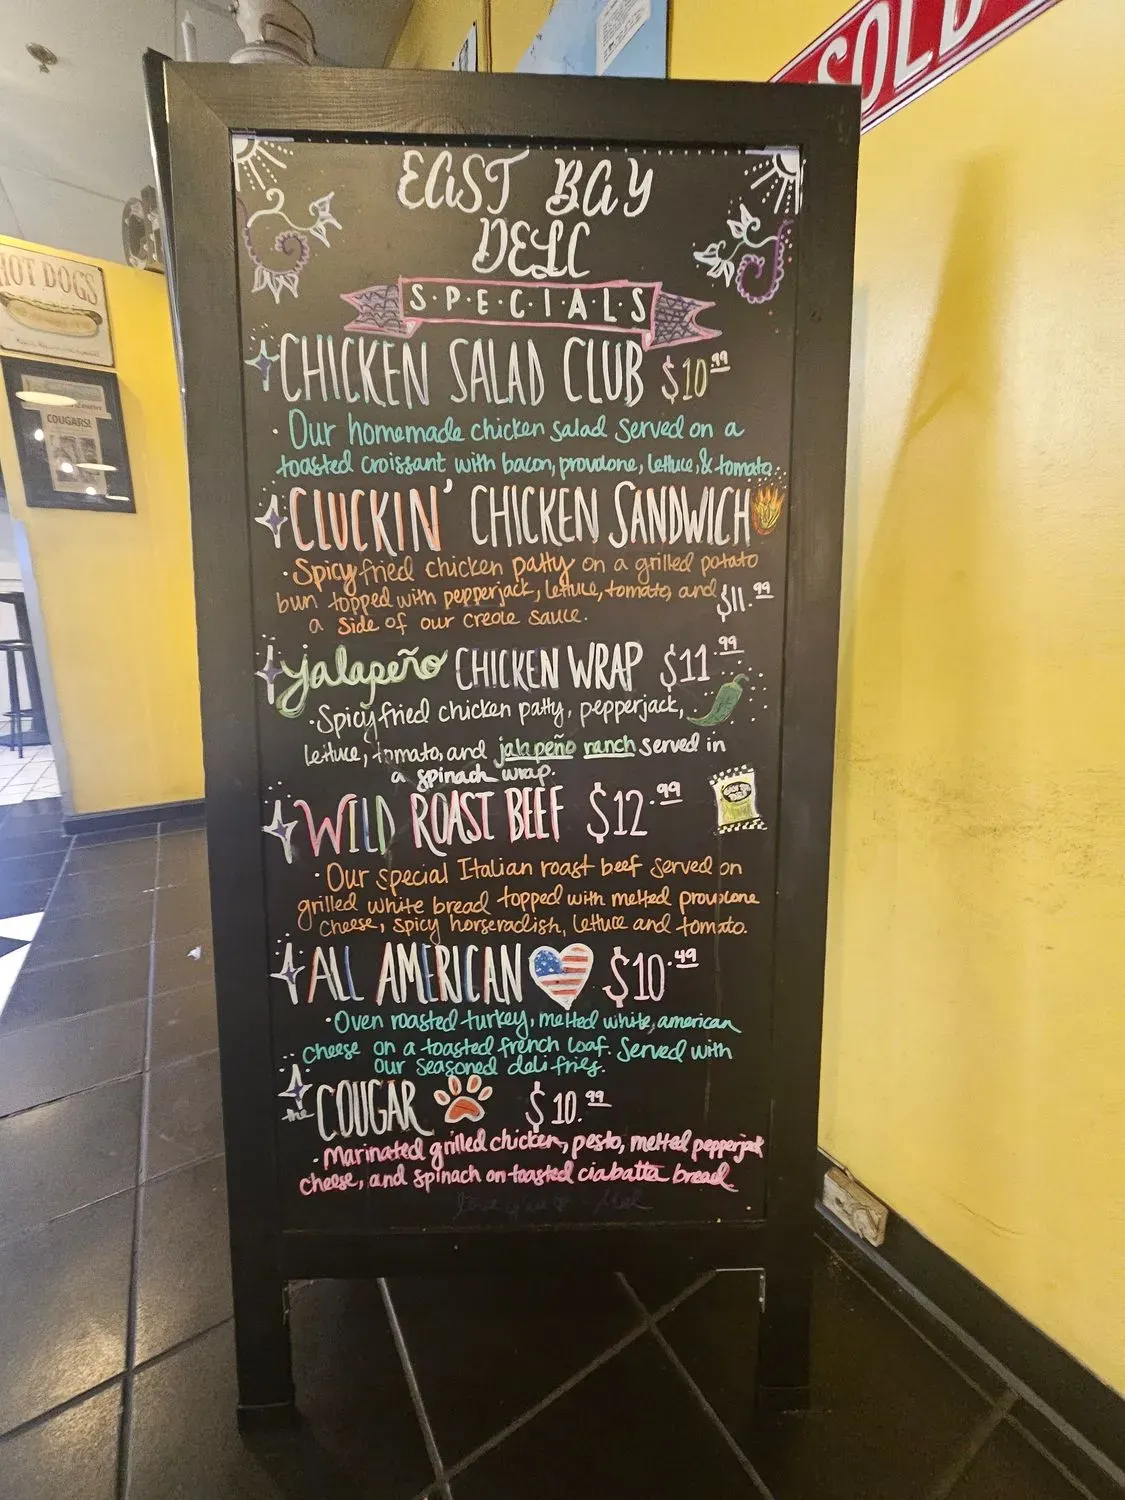 SOLD
HOT DOGS
COUGARS!
EAST BAY
DELI
S·P·E·C·I·A·L·S
CHICKEN SALAD CLUB $10.99
· Our homemade chicken salad served on a
toasted croissant with bacon, provolone, lettuce, & tomato
CLUCKIN' CHICKEN SANDWICH
· Spicy fried chicken patty on a grilled potato
bun topped with pepperjack, lettuce, tomato, and
a side of our creole sauce.
$11.99
jalapeño CHICKEN WRAP $11.99
· Spicy fried chicken patty, pepperjack,
lettuce, tomato, and jalapeño ranch served in
a spinach wrap.
WILD ROAST BEEF $12.99
· Our special Italian roast beef served on
grilled white bread topped with melted provolone
cheese, spicy horseradish, lettuce and tomato.
ALL AMERICAN $10.49
· Oven roasted turkey, melted white, american
cheese on a toasted french loaf. Served with
our seasoned deli fries.
the COUGAR $10.99
· Marinated grilled chicken, pesto, melted pepperjack
cheese, and spinach on toasted ciabatta bread